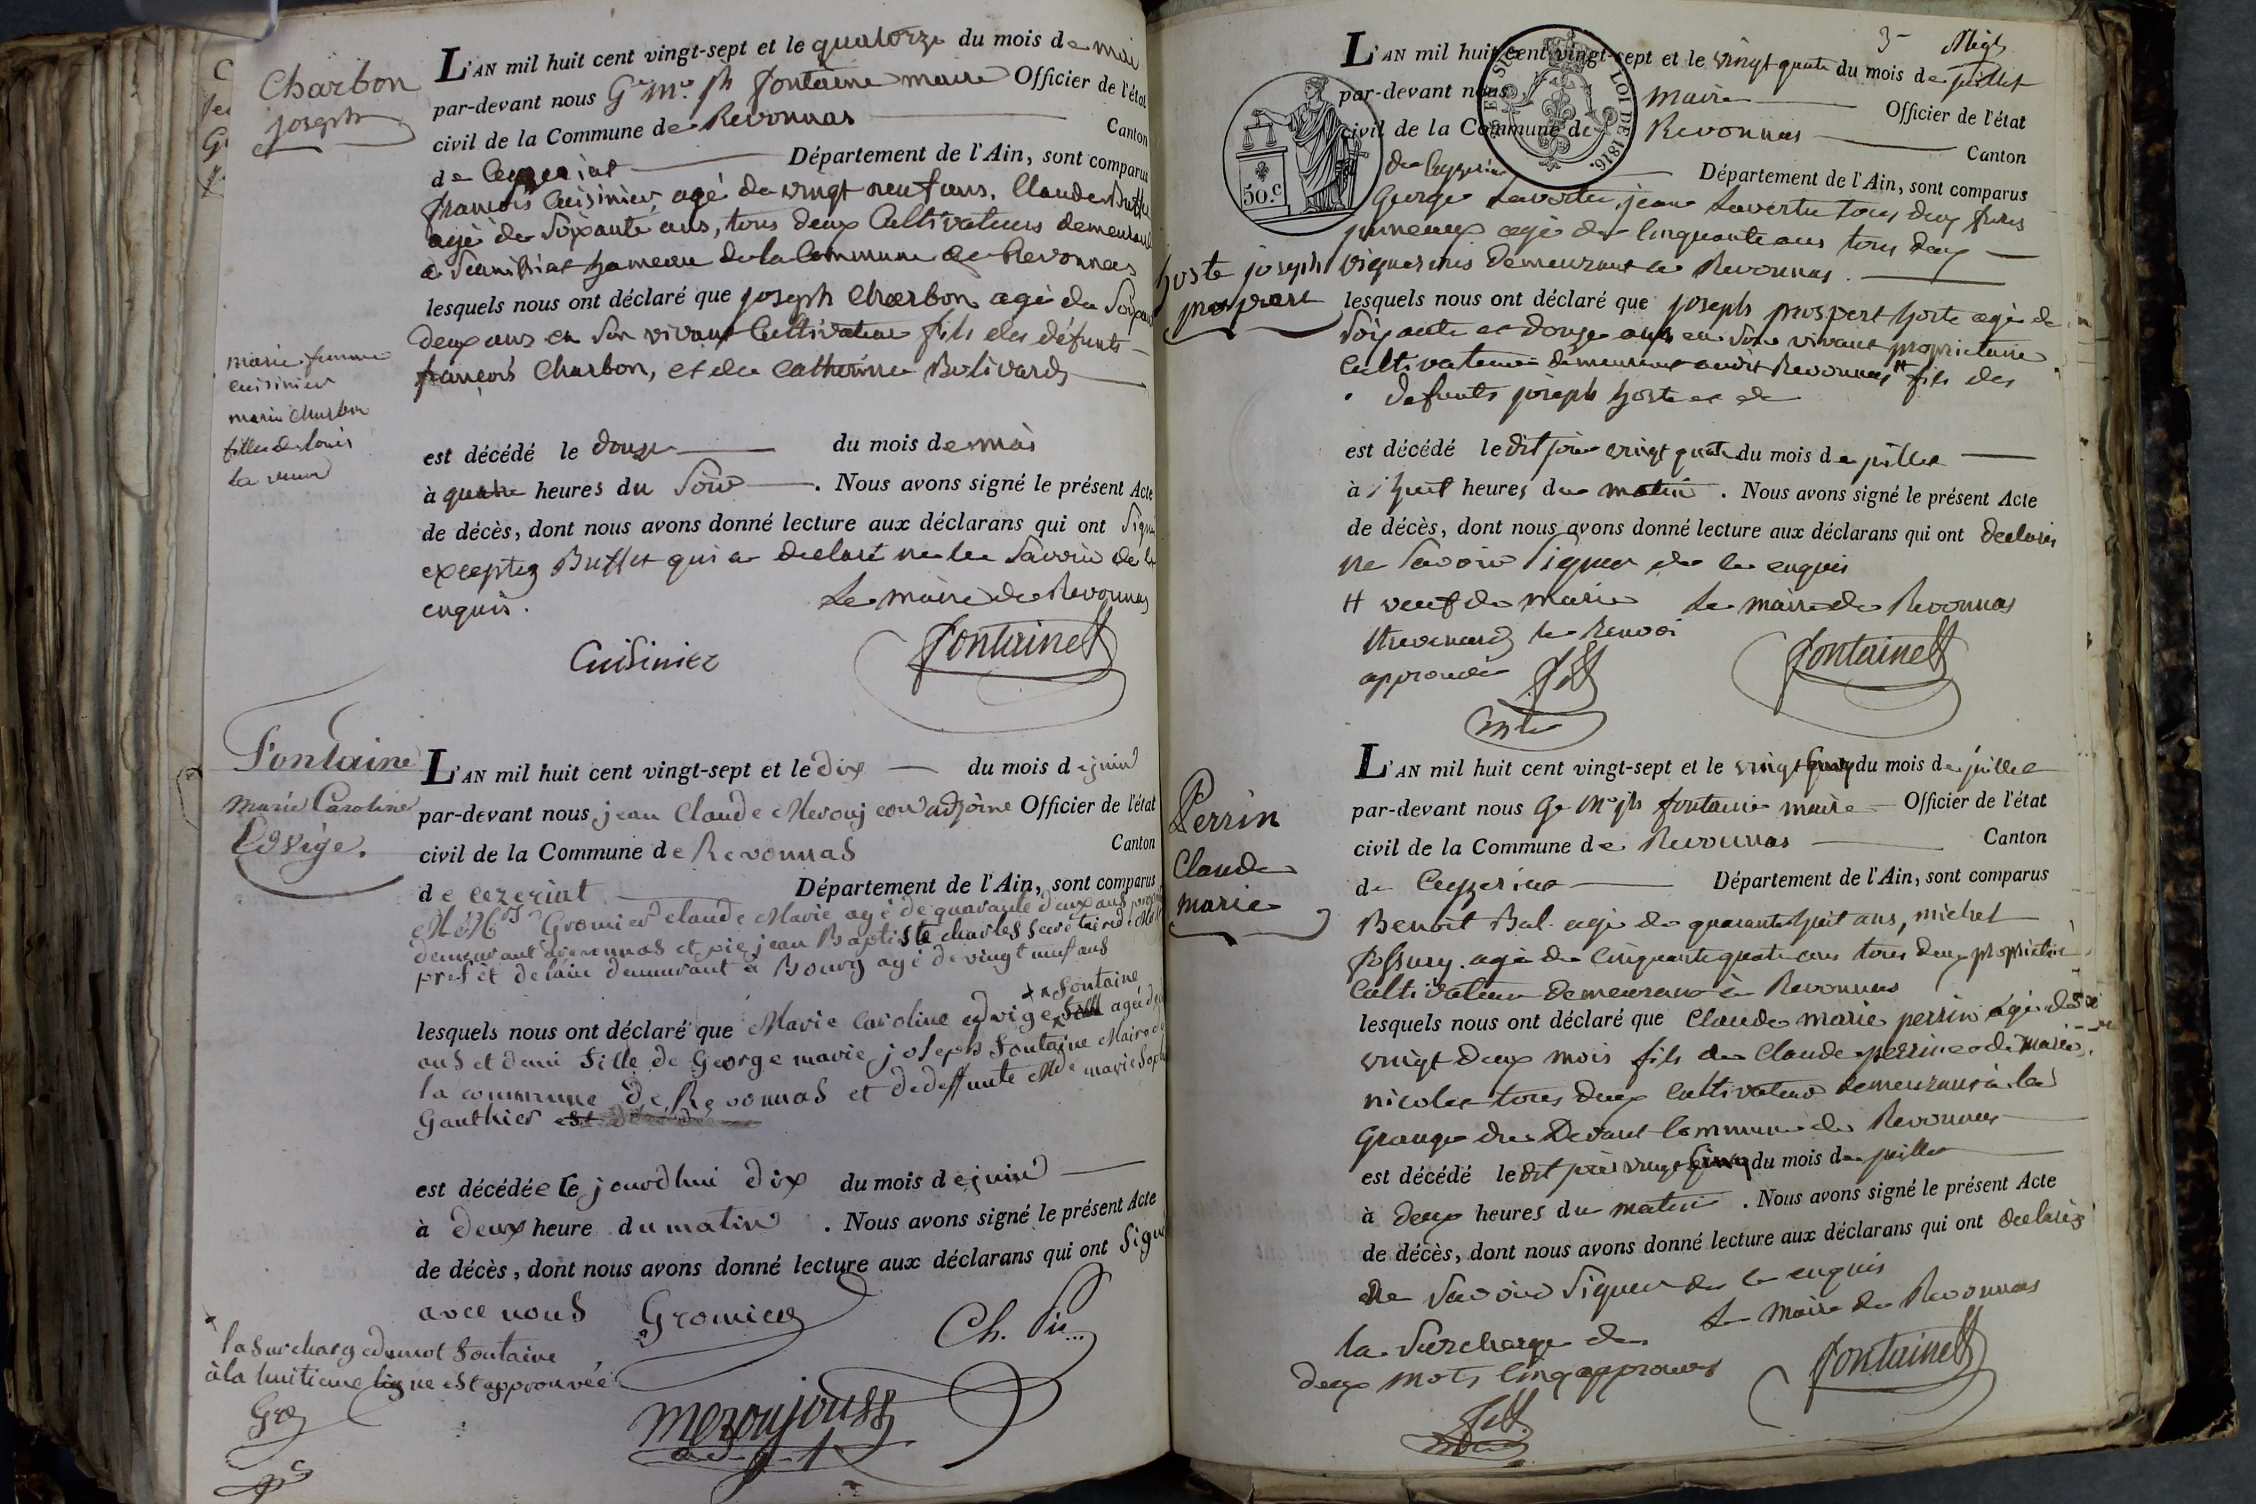 Charbon
joseph
L'AN mil huit cent vingt-sept et le quatorze du mois de mai
par-devant nous Ge Me jh fontaine maire Officier de l'état
civil de la Commune de Revonnas Canton
de Ceyzeriat Département de l'Ain, sont comparus
françois Cuisinier, agé de vingt neuf ans, Claude Buffet
agé de Soixante ans, tous deux Cultivateurs demeurant
a hameau de la Commune de Revonnas
lesquels nous ont déclaré que joseph Charbon agé de Soixante
deux ans en Son vivant Cultivateur fils des défunts
françois Charbon, et de Catherine
marie femme
cuisinier
marie Charbon
fille de louis
est décédé le douze du mois de mai
à quatre heures du Soir. Nous avons signé le présent Acte
de décès, dont nous avons donné lecture aux déclarans qui ont Signé
exceptez Buffet qui a declaré ne le Savoir de ce
enquis.
Le maire de Revonnas
Cuisinier
fontaine
Fontaine
Marie Caroline
Edvige.
L'AN mil huit cent vingt-sept et le dix du mois de juin
par-devant nous jean Claude adjoint Officier de l'état
civil de la Commune de Revonnas Canton
de cezeriat Département de l'Ain, sont comparus
Gromier claude Marie agé de quarante deux ans
demeurant a revonnas et pic jean Baptiste charles Secrétaire de Mr
préfet de l'ain demeurant à Bourg agé de vingt neuf ans
x Fontaine
lesquels nous ont déclaré que Marie Caroline edvige agée de
ans et demi fille de George marie joseph Fontaine Maire de
la commune de Revonnas et de deffunte Mde marie Soph
Gauthier
est décédée le jourdhui dix du mois de juin
à deux heure du matin. Nous avons signé le présent Acte
de décès, dont nous avons donné lecture aux déclarans qui ont Signé
avec nous Gromier Ch. Pic
x
la Surcharge du mot Fontaine
à la huitieme ligne est approuvée
3
L'AN mil huit cent vingt-sept et le vingt quatre du mois de juillet
par-devant nous maire Officier de l'état
civil de la Commune de Revonnas Canton
de Ceyzeriat Département de l'Ain, sont comparus
LOI DE 1816.
50.c
George Lavertu, jean Lavertu tous deux freres
jumeaux agé de Cinquante ans tous deux
vignerons demeurant a Revonnas.
hoste joseph
prospert
lesquels nous ont déclaré que joseph prospert hoste agé de
Soixante et douze ans en Son vivant proprietaire
Cultivateur demeurant audit Revonnas # fils des
defunts joseph hoste et de
est décédé le dit jour vingt quatre du mois de juillet
à huit heures du matin. Nous avons signé le présent Acte
de décès, dont nous avons donné lecture aux déclarans qui ont declarés
ne Savoir Signer de ce enquis
# veuf de marie
le Renvoi
approuvé
Le maire de Revonnas
fontaine
Perrin
Claude
marie
L'AN mil huit cent vingt-sept et le vingt cinq du mois de juillet
par-devant nous Ge Me jh fontaine maire Officier de l'état
civil de la Commune de Revonnas Canton
de Ceyzeriat Département de l'Ain, sont comparus
Benoit Bal agé de quarante huit ans, michel
agé de Cinquante quatre ans tous deux propriétaire
Cultivateur demeurant à Revonnas
lesquels nous ont déclaré que Claude marie perrin agé de
vingt deux mois fils de Claude perrin et de marie
nicolet tous deux Cultivateur demeurans à la
Grange du Devant Commune de Revonnas
est décédé le dit jour vingt cinq du mois de juillet
à deux heures du matin. Nous avons signé le présent Acte
de décès, dont nous avons donné lecture aux déclarans qui ont declarés
ne Savoir Signer de ce enquis
Le maire de Revonnas
la Surcharge des
deux mots Cinq approuvés
fontaine